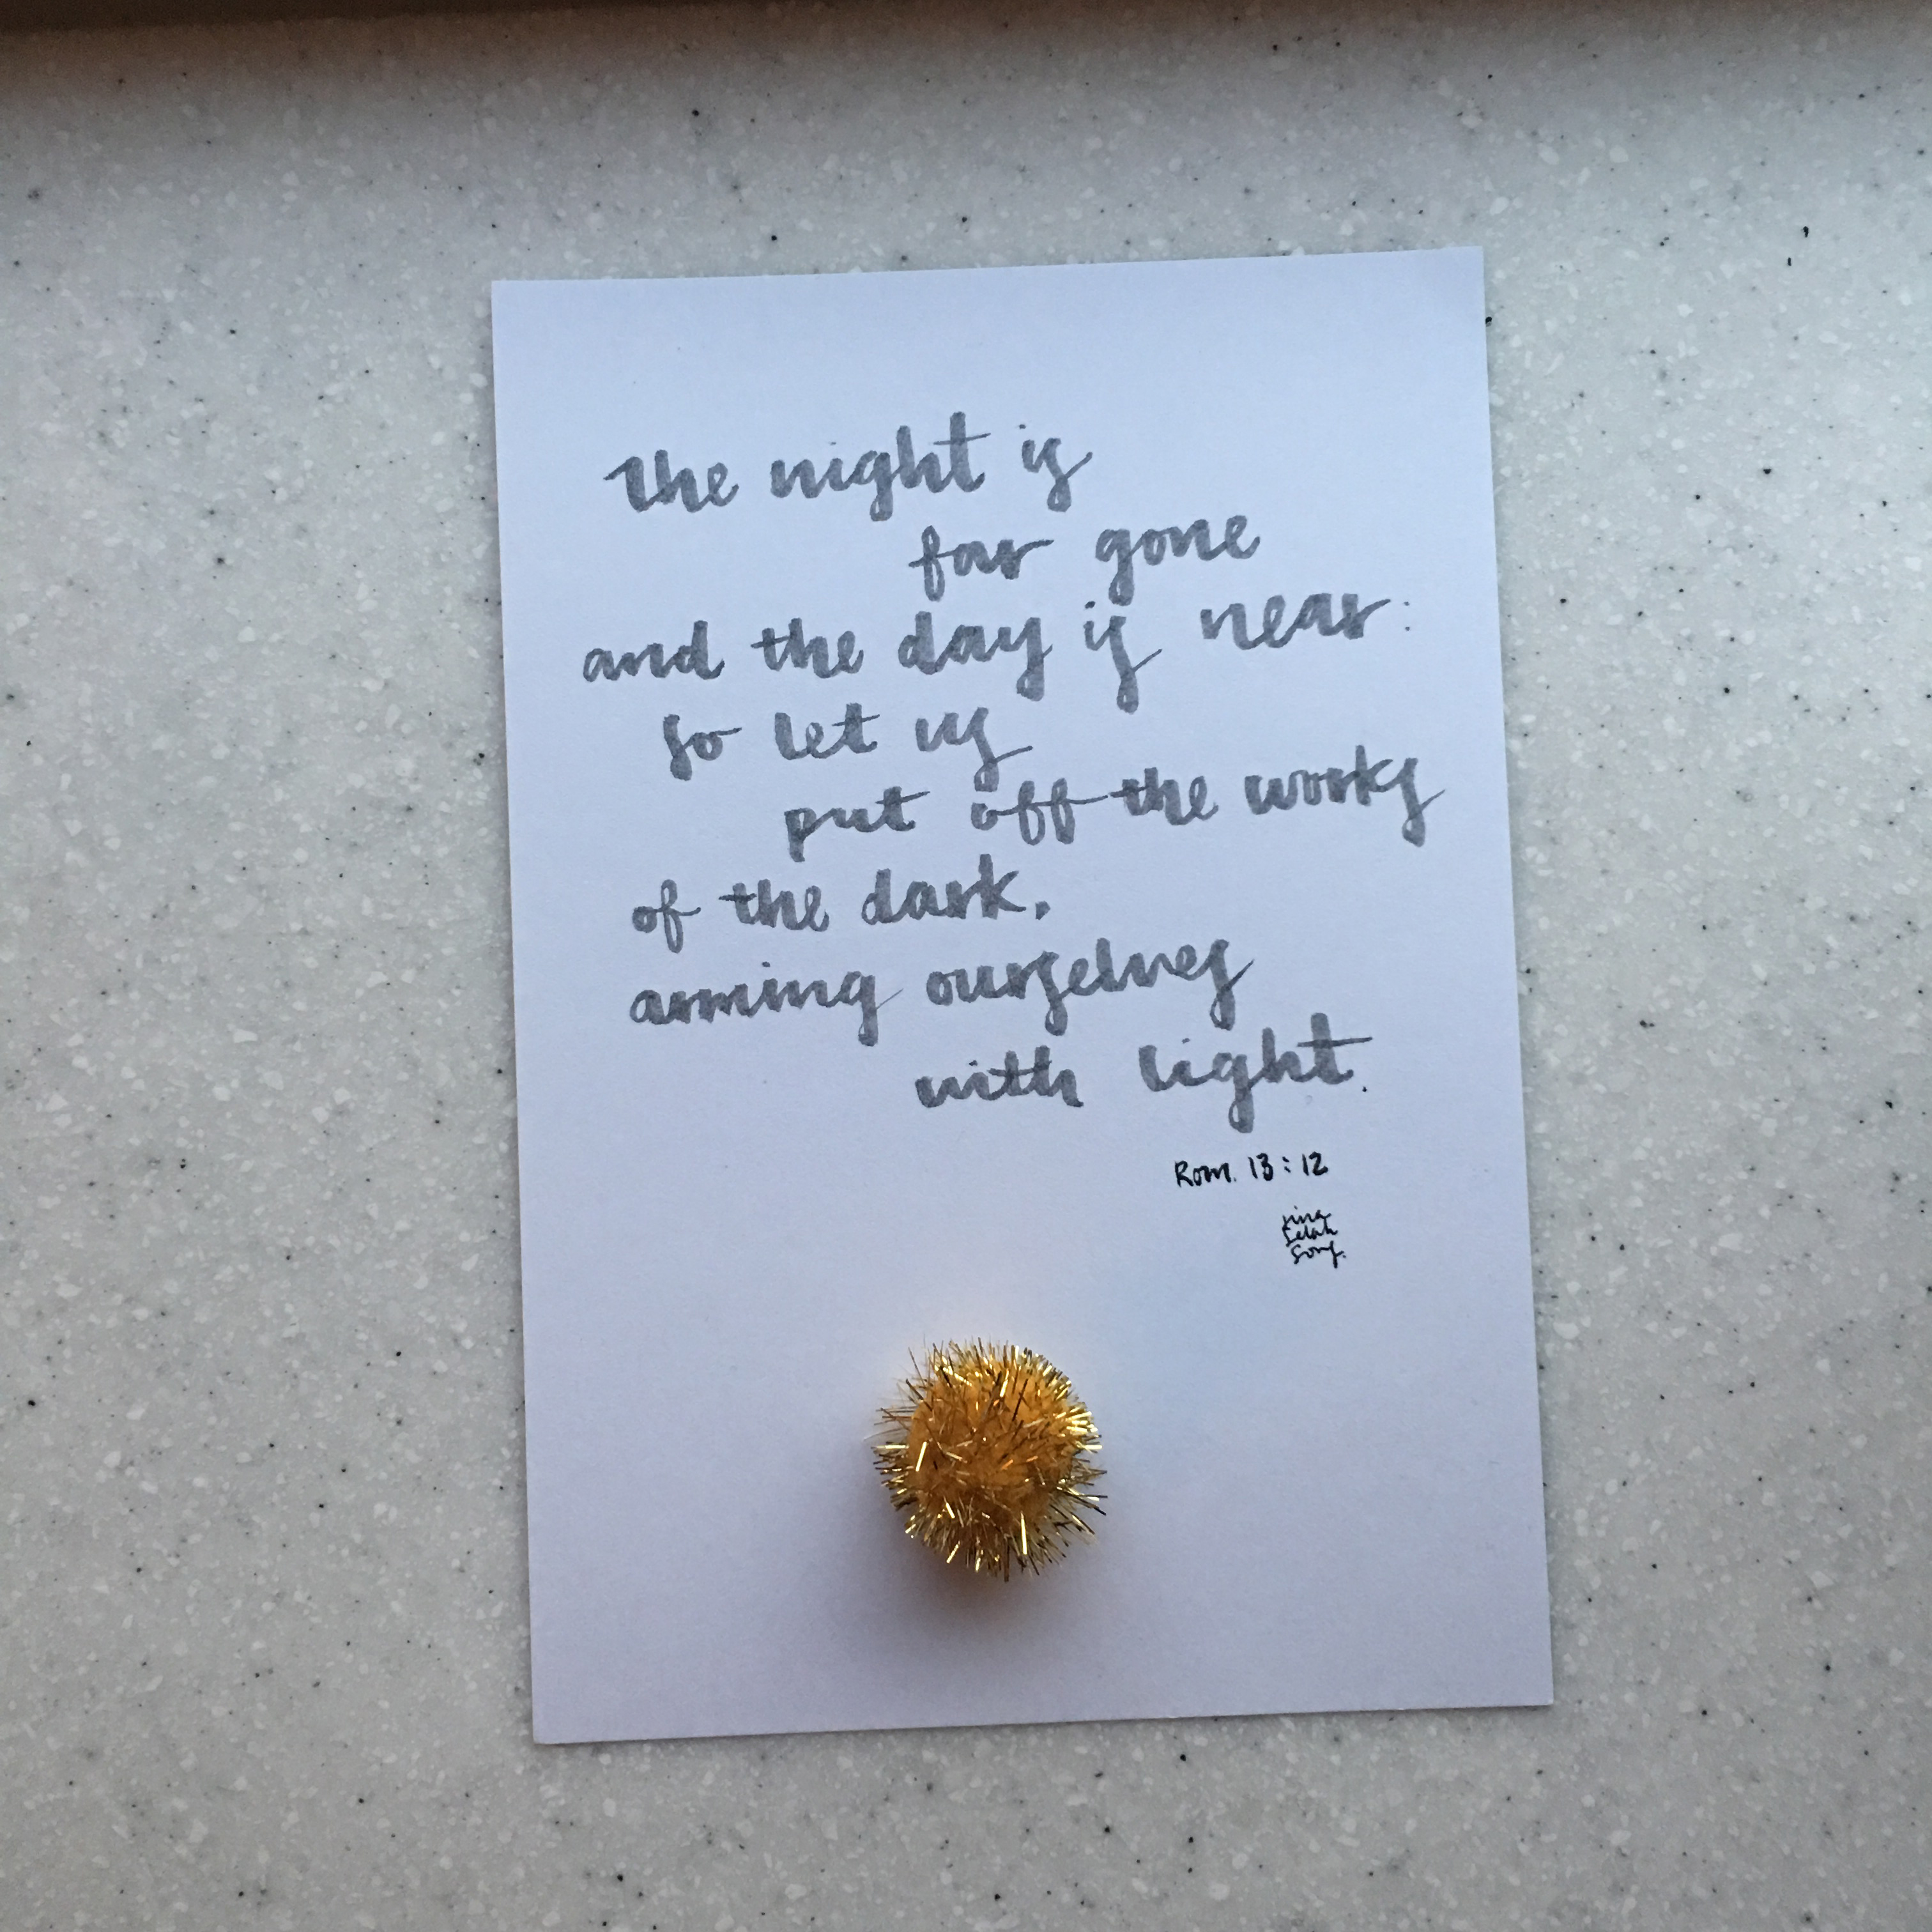 the night is
far gone
and the day is near:
so let us
put off the works
of the dark,
arming ourselves
with light.
Rom. 13:12
Selah
Song.